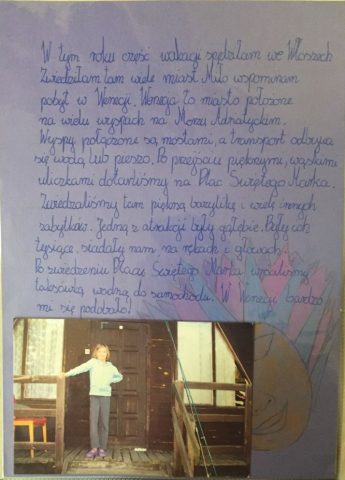 W tym roku część wakacji spędziłam we Włoszech
Zwiedziłam tam wiele miast. Miło wspominam
pobyt w Wenecji. Wenecja to miasto położone
na wielu wyspach na Morzu Adriatyckim.
Wyspy połączone są mostami, a transport odbywa
się wodą lub pieszo. Po przejściu pięknymi, wąskimi
uliczkami dotarliśmy na Plac Świętego Marka.
Zwiedzaliśmy tam piękną bazylikę i wiele innych
zabytków. Jedną z atrakcji były gołębie. Były ich
tysiące, siadały nam na rękach i głowach.
Po zwiedzeniu Placu Świętego Marka wróciliśmy
taksówką wodną do samochodu. W Wenecji bardzo
mi się podobało!